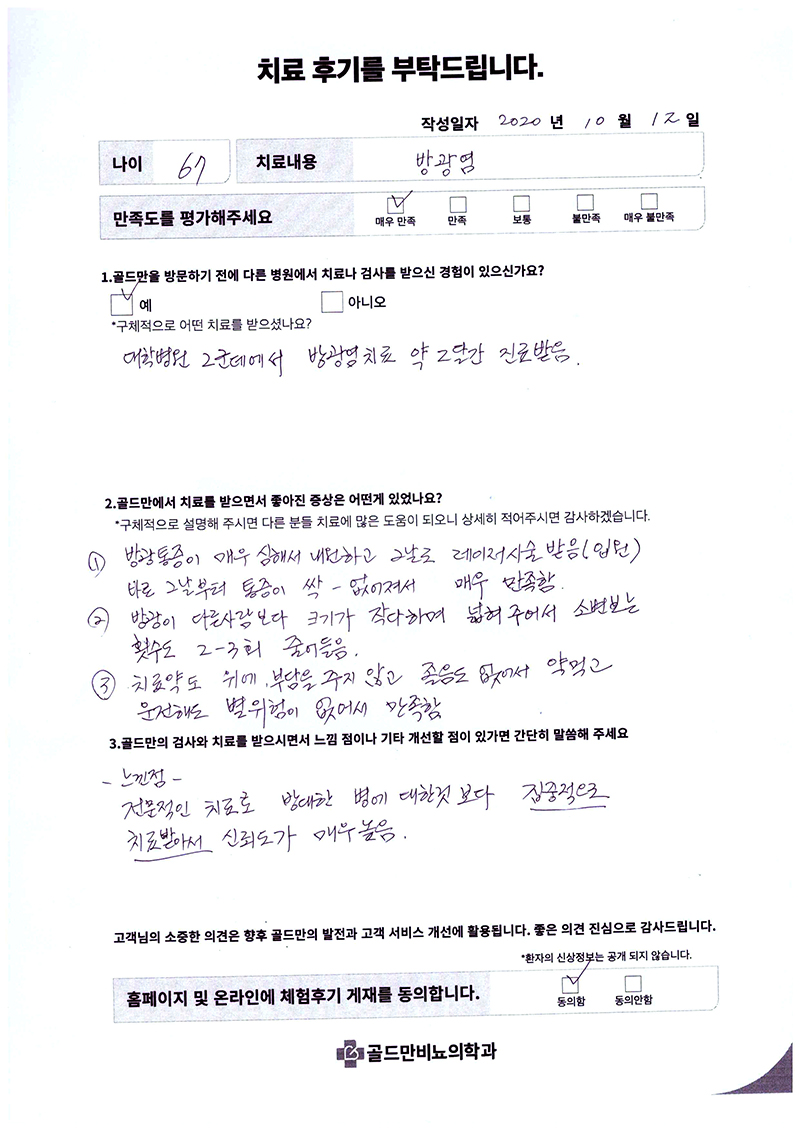 치료 후기를 부탁드립니다.
작성일자 2020 년 10 월 12 일
나이 67 치료내용 방광염
만족도를 평가해주세요 매우 만족 만족 보통 불만족 매우 불만족
1.골드만을 방문하기 전에 다른 병원에서 치료나 검사를 받으신 경험이 있으신가요?
예 아니오
*구체적으로 어떤 치료를 받으셨나요?
대학병원 2군데에서 방광염치료 약 2달간 진료받음.
2.골드만에서 치료를 받으면서 좋아진 증상은 어떤게 있었나요?
*구체적으로 설명해 주시면 다른 분들 치료에 많은 도움이 되오니 상세히 적어주시면 감사하겠습니다.
① 방광통증이 매우 심해서 내원하고 그날로 레이저시술 받음(입원)
바로 그날부터 통증이 싹 - 없어져서 매우 만족함.
② 방광이 다른사람보다 크기가 작다하며 넓혀 주어서 소변보는
횟수도 2-3회 줄어들음.
③ 치료약도 위에 부담을 주지 않고 졸음도 없어서 약먹고
운전해도 별위험이 없어서 만족함
3.골드만의 검사와 치료를 받으시면서 느낌 점이나 기타 개선할 점이 있가면 간단히 말씀해 주세요
- 느낀점 -
전문적인 치료로 방대한 병에 대한것 보다 집중적으로
치료받아서 신뢰도가 매우높음.
고객님의 소중한 의견은 향후 골드만의 발전과 고객 서비스 개선에 활용됩니다. 좋은 의견 진심으로 감사드립니다.
*환자의 신상정보는 공개 되지 않습니다.
홈페이지 및 온라인에 체험후기 게재를 동의합니다. 동의함 동의안함
골드만비뇨의학과